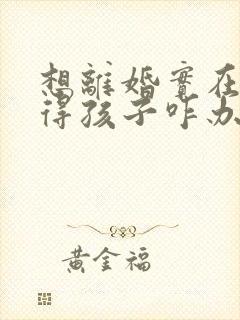 想離婚實在
得孩子咋办
黃金福